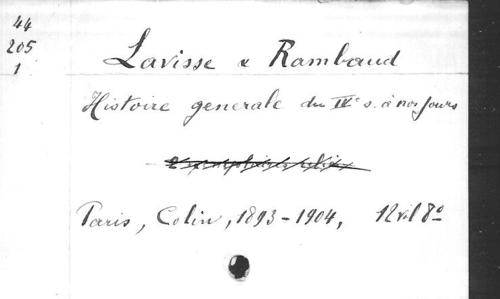 44
205
1
Lavisse & Rambaud
Histoire generale du IVe s. à nos jours
Paris, Colin, 1893-1904, 12 vol 8o